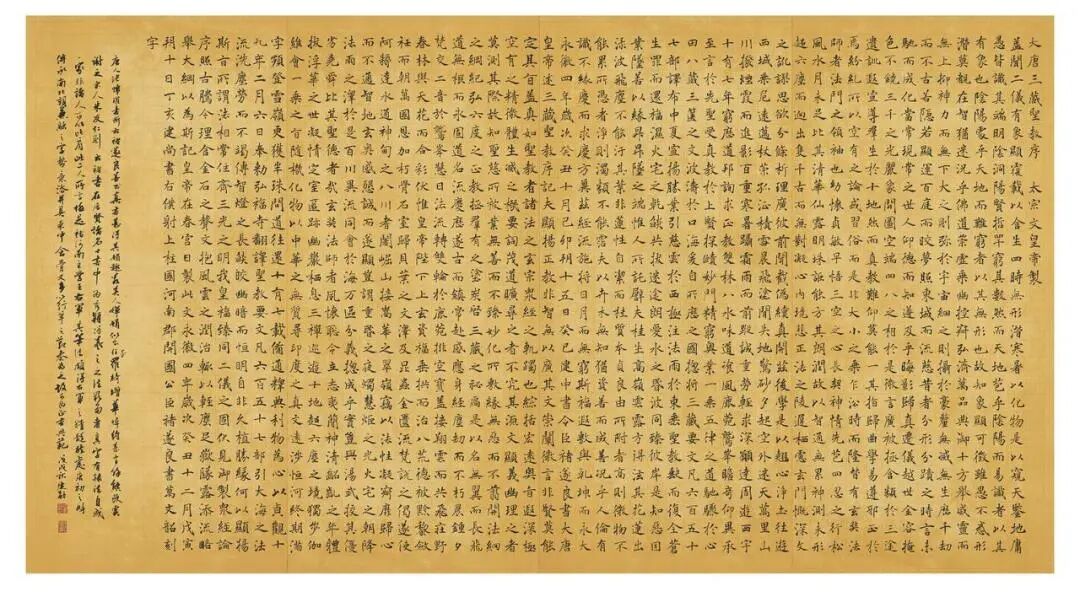 大唐三藏聖教序　太宗文皇帝製
蓋聞二儀有象顯覆載以含生四時無形潛寒暑以化物是以窺天鑒地庸
愚皆識其端明陰洞陽賢哲罕窮其數然而天地苞乎陰陽而易識者以其
有象也陰陽處乎天地而難窮者以其無形也故知象顯可徵雖愚不惑形
潛莫覩在智猶迷況乎佛道崇虛乘幽控寂弘濟萬品典御十方舉威靈而
無上抑神力而無下大之則彌於宇宙細之則攝於毫釐無滅無生歷千劫
而不古若隱若顯運百庭而皎夢照東域而流慈昔者分形分蹟之時言未
馳而成化當常現常之世人仰德而知遵及乎晦影歸真遷儀越世金容掩
色不鏡三千之光麗象開圖空端四八之相於是微言廣被拯含類於三途
遺訓遐宣導羣生於十地然而真教難仰莫能一其指歸曲學易遵邪正於
焉紛糺所以空有之論或習俗而是非大小之乘乍沿時而隆替有玄奘法
師者法門之領袖也幼懷貞敏早悟三空之心長契神情先苞四忍之行松
風水月未足比其清華仙露明珠詎能方其朗潤故以智通無累神測未形
超六塵而迥出隻千古而無對凝心內境悲正法之陵遲栖慮玄門慨深文
之訛謬思欲分條析理廣彼前聞截偽續真開茲後學是以翹心淨土往遊
西域乘危遠邁杖策孤征積雪晨飛塗閒失地驚砂夕起空外迷天萬里山
川撥煙霞而進影百重寒暑躡霜雨而前蹤誠重勞輕求深願達周遊西宇
十有七年窮歷道邦詢求正教雙林八水味道飡風鹿菀鷲峯瞻奇仰異承
至言於先聖受真教於上賢探賾妙門精窮奧業一乘五律之道馳驟於心
田八藏三篋之文波濤於口海爰自所歷之國揔將三藏要文凡六百五十
七部譯布中夏宣揚勝業引慈雲於西極注法雨於東垂聖教缺而復全蒼
生罪而還福濕火宅之乾燄共拔迷途朗愛水之昏波同臻彼岸是知惡因
業墜善以緣昇昇墜之端惟人所託譬夫桂生高嶺雲露方得泫其花蓮出
淥波飛塵不能汙其葉非蓮性自潔而桂質本貞良由所附者高則微物不
能累所憑者淨則濁類不能霑夫以卉木無知猶資善而成善況乎人倫有
識不緣慶而求慶方冀茲經流施將日月而無窮斯福遐敷與乾坤而永大
永徽四年歲次癸丑十月己卯朔十五日癸巳建中書令臣褚遂良書大唐
皇帝述三藏聖教序記夫顯揚正教非智無以廣其文崇闡微言非賢莫能
定其旨蓋真如聖教者諸法之玄宗衆經之軌躅也綜括宏遠奧旨遐深極
空有之精微體生滅之機要詞茂道曠尋之者不究其源文顯義幽理之者
莫測其際故知聖慈所被業無善而不臻妙化所敷緣無惡而不翦開法網
之綱紀弘六度之正教拯羣有之塗炭啓三藏之秘扃是以名無翼而長飛
道無根而永固道名流慶歷遂古而鎮常赴感應身經塵劫而不朽晨鐘夕
梵交二音於鷲峯慧日法流轉雙輪於鹿菀排空寶蓋接翔雲而共飛莊野
春林與天花而合彩伏惟皇帝陛下上玄資福垂拱而治八荒德被黔黎斂
衽而朝萬國恩加朽骨石室歸貝葉之文澤及昆蟲金匱流梵說之偈遂使
阿耨達水通神甸之八川耆闍崛山接嵩華之翠嶺竊以法性凝寂靡歸心
而不通智地玄奧感懇誠而遂顯豈謂重昏之夜燭慧炬之光火宅之朝降
法雨之澤於是百川異流同會於海萬區分義揔成乎實豈與湯武校其優
劣堯舜比其聖德者哉玄奘法師者夙懷聰令立志夷簡神清齠齔之年體
拔浮華之世凝情定室匿跡幽巖栖息三禪巡遊十地超六塵之境獨步伽
維會一乘之旨隨機化物以中華之無質尋印度之真文遠涉恒河終期滿
字頻登雪嶺更獲半珠問道往還十有七載備通釋典利物為心以貞觀十
九年二月六日奉勑弘福寺翻譯聖教要文凡六百五十七部引大海之法
流洗塵勞而不竭傳智燈之長燄皎幽暗而恒明自非久植勝緣何以顯揚
斯旨所謂法相常住齊三光之明我皇福臻同二儀之固伏見御製衆經論
序照古騰今理含金石之聲文抱風雲之潤治輒以輕塵足岳墜露添流略
舉大綱以為斯記永徽四年歲次癸丑十二月戊寅
朔十日丁亥建尚書右僕射上柱國河南郡開國公臣褚遂良書萬文韶刻
字